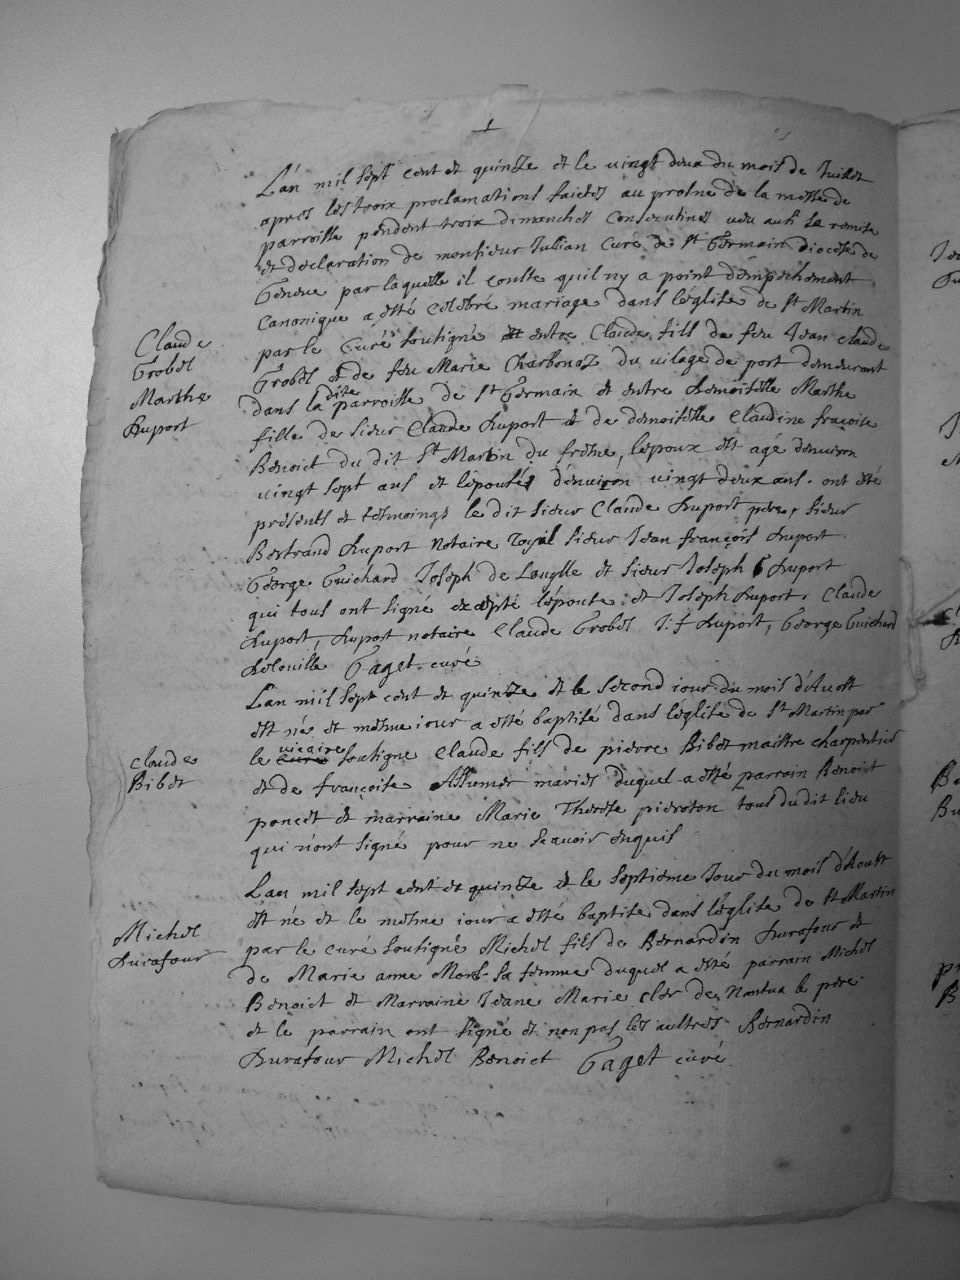 L'an mil sept cent et quinze et le vingt deux du mois de Juillet
apres les troix proclamations faictes au prosne de la messe de
parroisse pendent troix dimanches consecutives veu aussi la remise
et declaration de monsieur Jullian Curé de St Germain diocese de
Geneve par laquelle il conste quil ny a point dempéchement
Canonique a esté celebré mariage dans l'église de St Martin
par le Curé soutigné entre Claude fils de feu Jean Claude
Grobel et de feu Marie Charbonoz du vilage de port demeurant
dans la dite parroisse de St Germain et entre demoiselle Marthe
fille de sieur Claude Huport et de demoiselle Claudine françoise
Benoict du dit St Martin du fresne, lepoux est agé denviron
vingt sept ans et lépouse d'environ vingt deux ans. ont été
présents et témoings le dit sieur Claude Huport pere, sieur
Bertrand Huport Notaire royal sieur Jean françois Huport
George Guichard Joseph de et sieur Joseph Huport
qui tous ont signé excepté lépouse et Joseph Huport. Claude
Huport, Huport notaire Claude Grobel J: f Huport, George Guichard
Gaget curé
Claude
Grobel
Marthe
Huport
Lan mil sept cent et quinze et le second iour du mois d'Aoust
est né et méme iour a esté baptisé dans l'église de St Martin par
le vicaire soutigné Claude fils de pierre Bibet maistre charpentier
et de françoise mariés duquel a esté parrain Benoist
poncet et marraine Marie Therese pieroton tous du dit lieu
qui n'ont signé pour ne scavoir enquis
claude
Bibet
Lan mil sept cent et quinze et le septieme Jour du mois d'Aoust
est né et le méme iour a esté baptisé dans l'église de St Martin
par le curé soutigné Michel fils de Bernardin Durafour et
de Marie anne Morel sa femme duquel a esté parrain Michel
Benoict et Marraine Jeane Marie cler de Nantua le pere
et le parrain ont signé et non pas les aultres Bernardin
Durafour Michel Benoict Gaget curé
Michel
Durafour